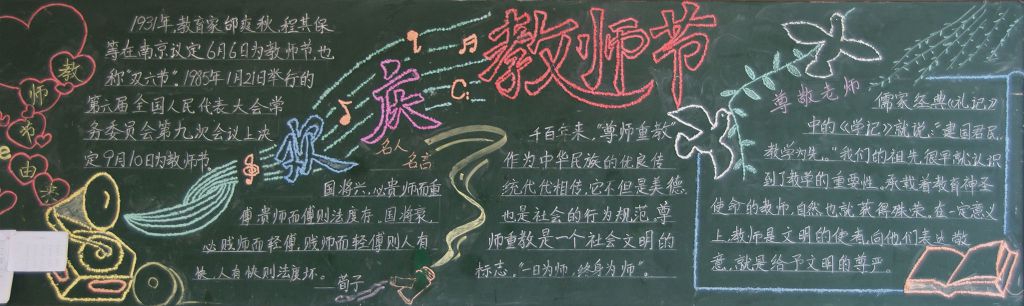 欢庆教师节
教师节由来
1931年,教育家邰爽秋、程其保
等在南京议定6月6日为教师节,也
称"双六节"。1985年1月21日举行的
第六届全国人民代表大会常
务委员会第九次会议上决
定9月10日为教师节。
名人
名言
国将兴,必贵师而重
傅,贵师而傅则法度存。国将衰,
必贱师而轻傅,贱师而轻傅则人有
快,人有快则法度坏。 荀子
千百年来,"尊师重教"
作为中华民族的优良传
统代代相传,它不但是美德
也是社会的行为规范。尊
师重教是一个社会文明的
标志,"一日为师,终身为师"。
尊敬老师
儒家经典《礼记》
中的《学记》就说:"建国君民,
教学为先。"我们的祖先很早就认识
到了教学的重要性。承载着教育神圣
使命的教师,自然也就获得殊荣。在一定意义
上,教师是文明的使者,向他们表达敬
意,就是给予文明的尊严。